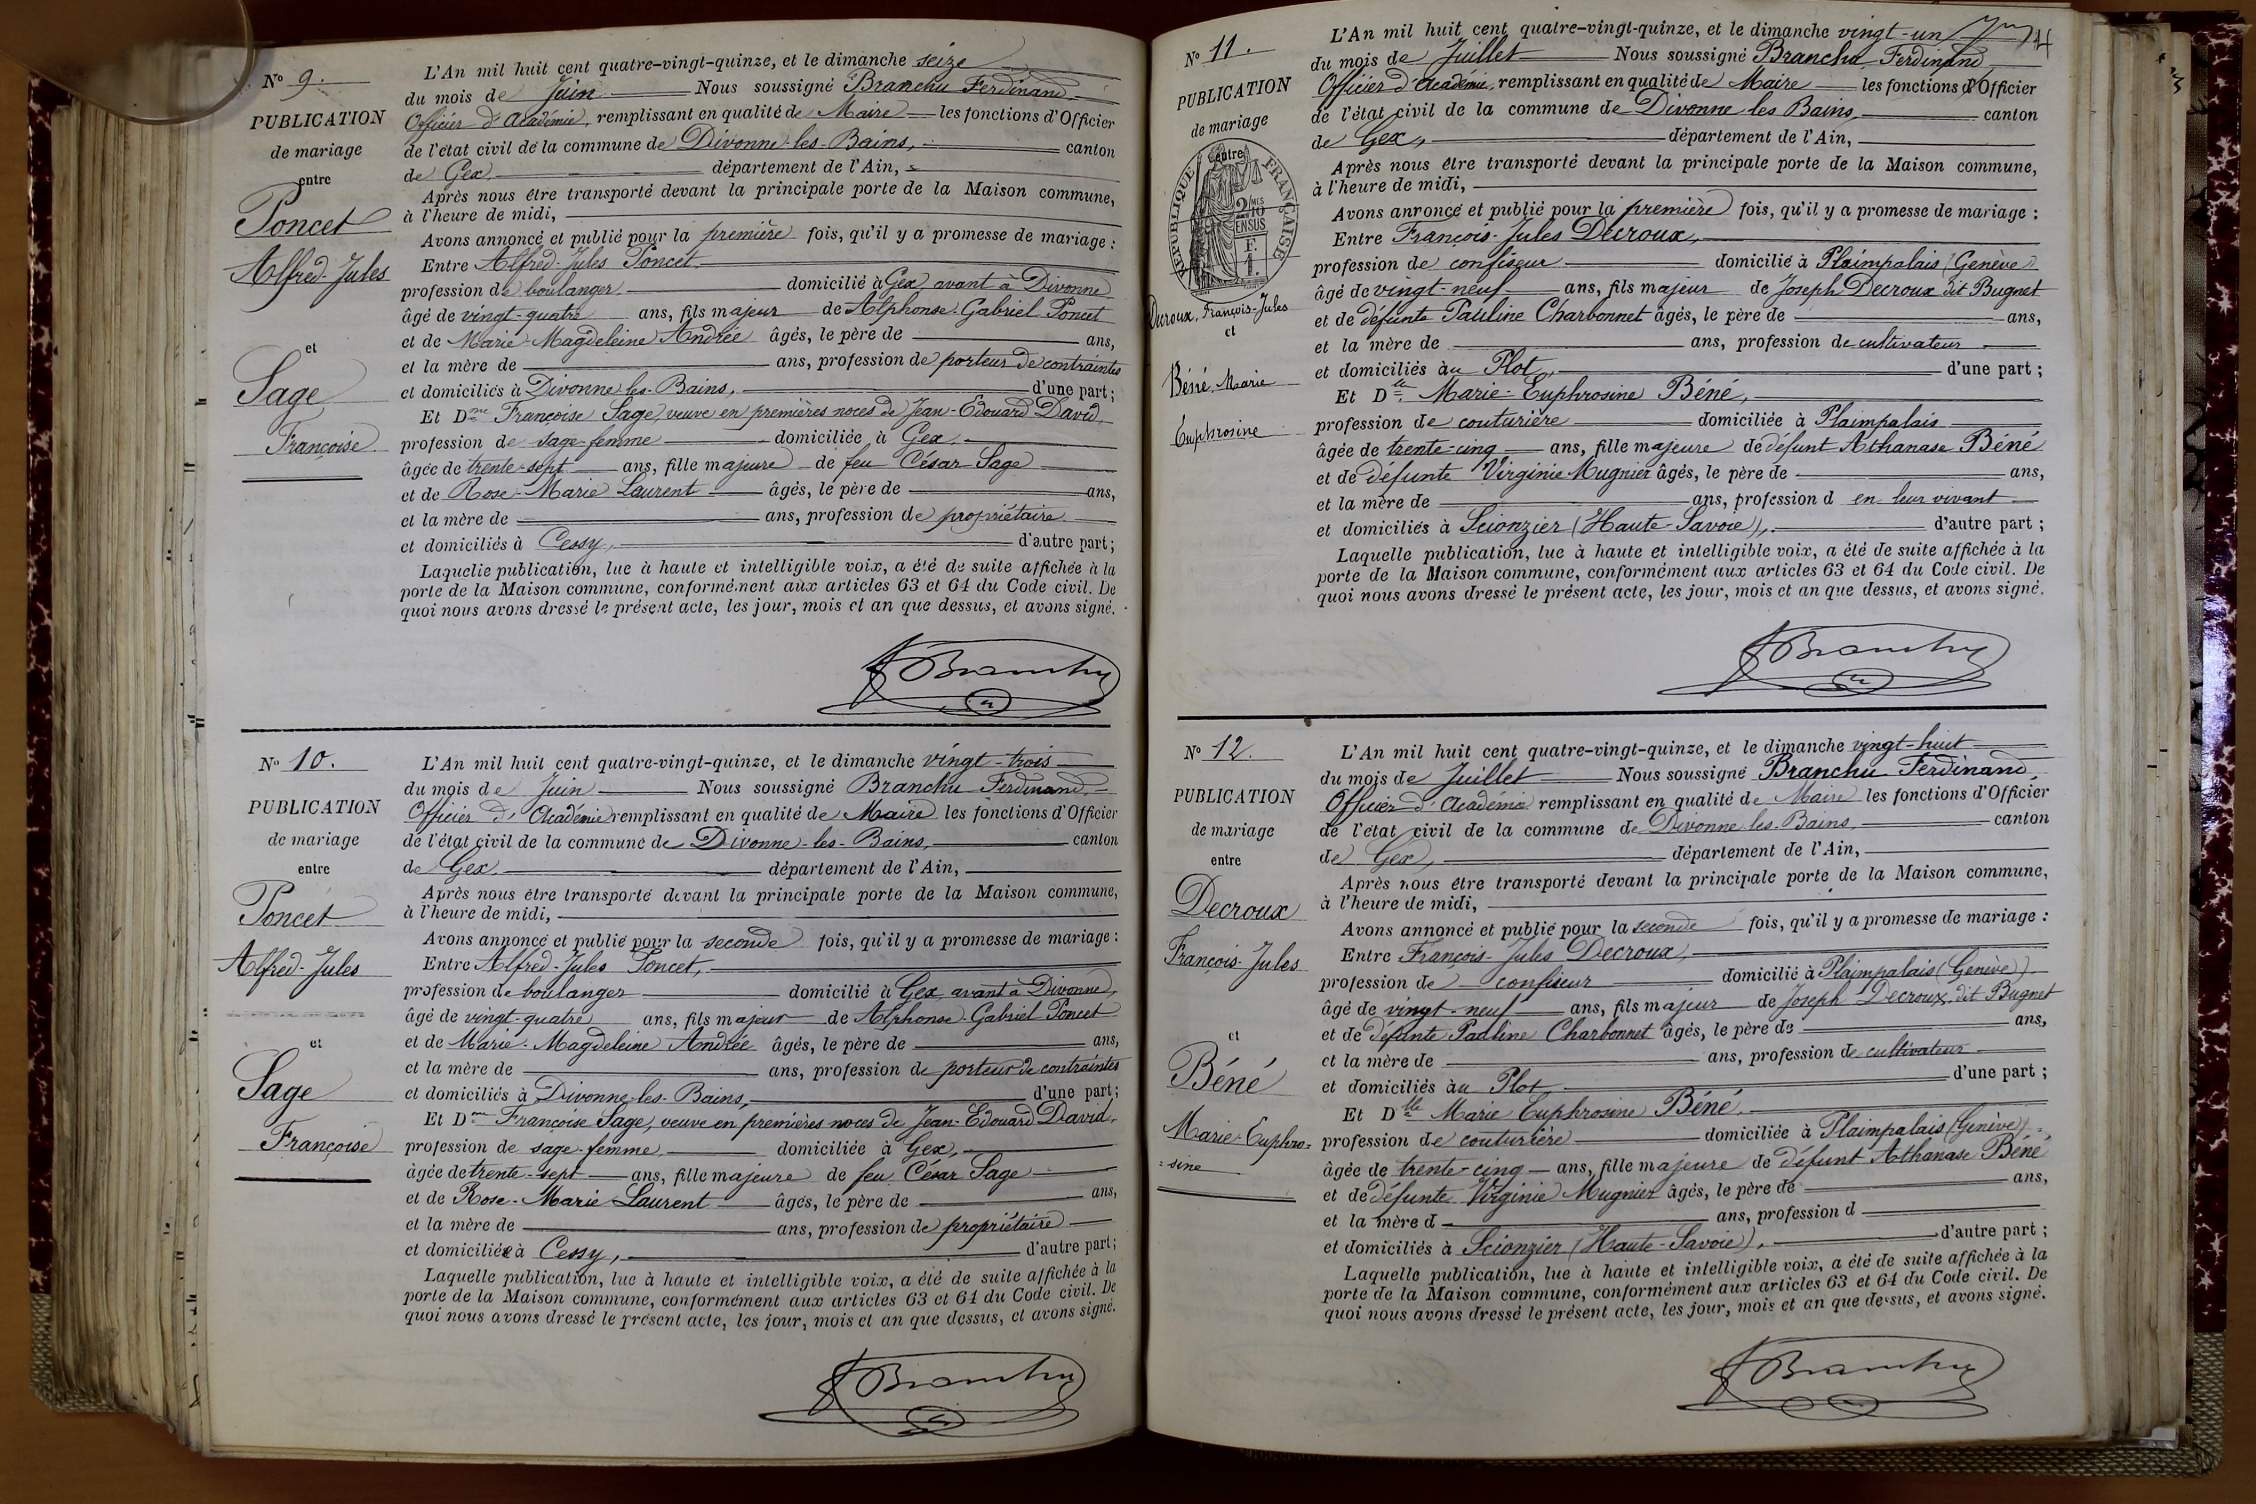 N° 9.
PUBLICATION
de mariage
entre
Poncet
Alfred-Jules
et
Sage
Françoise
L'An mil huit cent quatre-vingt-quinze, et le dimanche seize
du mois de Juin Nous soussigné Branchu Ferdinand
Officier d'Académie, remplissant en qualité de Maire les fonctions d'Officier
de l'état civil de la commune de Divonne-les-Bains, canton
de Gex département de l'Ain,
Après nous être transporté devant la principale porte de la Maison commune,
à l'heure de midi,
Avons annoncé et publié pour la première fois, qu'il y a promesse de mariage :
Entre Alfred-Jules Poncet
profession de boulanger domicilié à Gex, avant à Divonne
âgé de vingt-quatre ans, fils majeur de Alphonse-Gabriel Poncet
et de Marie-Magdeleine Andrée âgés, le père de ans,
et la mère de ans, profession de porteur de contraintes
et domiciliés à Divonne-les-Bains, d'une part;
Et Dme Françoise Sage, veuve en premières noces de Jean-Edouard David,
profession de sage-femme domiciliée à Gex
âgée de trente-sept ans, fille majeure de feu César Sage
et de Rose-Marie Laurent âgés, le père de ans,
et la mère de ans, profession de propriétaire
et domiciliés à Cessy, d'autre part;
Laquelle publication, lue à haute et intelligible voix, a été de suite affichée à la
porte de la Maison commune, conformément aux articles 63 et 64 du Code civil. De
quoi nous avons dressé le présent acte, les jour, mois et an que dessus, et avons signé.
Branchu
N° 10.
PUBLICATION
de mariage
entre
Poncet
Alfred-Jules
et
Sage
Françoise
L'An mil huit cent quatre-vingt-quinze, et le dimanche vingt-trois
du mois de Juin Nous soussigné Branchu Ferdinand,
Officier d'Académie remplissant en qualité de Maire les fonctions d'Officier
de l'état civil de la commune de Divonne-les-Bains, canton
de Gex département de l'Ain,
Après nous être transporté devant la principale porte de la Maison commune,
à l'heure de midi,
Avons annoncé et publié pour la seconde fois, qu'il y a promesse de mariage :
Entre Alfred-Jules Poncet,
profession de boulanger domicilié à Gex, avant à Divonne,
âgé de vingt-quatre ans, fils majeur de Alphonse-Gabriel Poncet
et de Marie-Magdeleine Andrée âgés, le père de ans,
et la mère de ans, profession de porteur de contraintes
et domiciliés à Divonne-les-Bains, d'une part;
Et Dme Françoise Sage, veuve en premières noces de Jean-Edouard David,
profession de sage-femme domiciliée à Gex,
âgée de trente-sept ans, fille majeure de feu César Sage
et de Rose-Marie Laurent âgés, le père de ans,
et la mère de ans, profession de propriétaire
et domiciliée à Cessy, d'autre part;
Laquelle publication, lue à haute et intelligible voix, a été de suite affichée à la
porte de la Maison commune, conformément aux articles 63 et 64 du Code civil. De
quoi nous avons dressé le présent acte, les jour, mois et an que dessus, et avons signé.
Branchu
N° 11.
PUBLICATION
de mariage
entre
RÉPUBLIQUE FRANÇAISE
2/10
EN SUS
Decroux, François-Jules
et
Béné, Marie
Euphrosine
L'An mil huit cent quatre-vingt-quinze, et le dimanche vingt-un
du mois de Juillet Nous soussigné Branchu Ferdinand
Officier d'Académie, remplissant en qualité de Maire les fonctions d'Officier
de l'état civil de la commune de Divonne-les-Bains canton
de Gex, département de l'Ain,
Après nous être transporté devant la principale porte de la Maison commune,
à l'heure de midi,
Avons annoncé et publié pour la première fois, qu'il y a promesse de mariage :
Entre François-Jules Decroux,
profession de confiseur domicilié à Plaimpalais (Genève)
âgé de vingt-neuf ans, fils majeur de Joseph Decroux dit Bugnet
et de défunte Pauline Charbonnet âgés, le père de ans,
et la mère de ans, profession de cultivateur
et domiciliés au Plot, d'une part ;
Et Dlle Marie-Euphrosine Béné,
profession de couturière domiciliée à Plaimpalais
âgée de trente-cinq ans, fille majeure de défunt Athanase Béné
et de défunte Virginie Mugnier âgés, le père de ans,
et la mère de ans, profession d en leur vivant
et domiciliés à Scionzier (Haute-Savoie), d'autre part ;
Laquelle publication, lue à haute et intelligible voix, a été de suite affichée à la
porte de la Maison commune, conformément aux articles 63 et 64 du Code civil. De
quoi nous avons dressé le présent acte, les jour, mois et an que dessus, et avons signé.
Branchu
N° 12.
PUBLICATION
de mariage
entre
Decroux
François-Jules
et
Béné
Marie-Euphro=
=sine
L'An mil huit cent quatre-vingt-quinze, et le dimanche vingt-huit
du mois de Juillet Nous soussigné Branchu Ferdinand,
Officier d'Académie remplissant en qualité de Maire les fonctions d'Officier
de l'état civil de la commune de Divonne-les-Bains, canton
de Gex, département de l'Ain,
Après nous être transporté devant la principale porte de la Maison commune,
à l'heure de midi,
Avons annoncé et publié pour la seconde fois, qu'il y a promesse de mariage :
Entre François-Jules Decroux,
profession de confiseur domicilié à Plaimpalais (Genève)
âgé de vingt-neuf ans, fils majeur de Joseph Decroux dit Bugnet
et de défunte Pauline Charbonnet âgés, le père de ans,
et la mère de ans, profession de cultivateur
et domiciliés au Plot, d'une part ;
Et Dlle Marie Euphrosine Béné,
profession de couturière domiciliée à Plaimpalais (Genève)
âgée de trente-cinq ans, fille majeure de défunt Athanase Béné
et de défunte Virginie Mugnier âgés, le père de ans,
et la mère d ans, profession d
et domiciliés à Scionzier (Haute-Savoie), d'autre part ;
Laquelle publication, lue à haute et intelligible voix, a été de suite affichée à la
porte de la Maison commune, conformément aux articles 63 et 64 du Code civil. De
quoi nous avons dressé le présent acte, les jour, mois et an que dessus, et avons signé.
Branchu